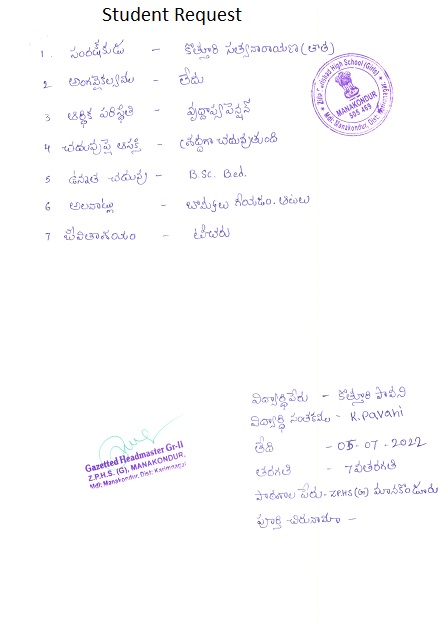 Student Request
1. సంరక్షకుడు - కొత్తూరి సత్యనారాయణ (తాత)
2 అంగవైకల్యము - లేదు
3 ఆర్థిక పరిస్థితి - వృద్ధాప్యపెన్షన్
4 చదువుపై ఆసక్తి - శ్రద్ధగా చదువుతుంది
5 ఉన్నత చదువు - B.Sc. Bed.
6 అలవాట్లు - బొమ్మలు గీయడం. ఆటలు
7 జీవితాశయం - టీచరు
Zilla Parishad High School (Girls)
MANAKONDUR
505 469
Mdl: Manakondur, Dist:
విద్యార్థి పేరు - కొత్తూరి పావని
విద్యార్థి సంతకము - K.Pavani
తేది - 05-07-2022
తరగతి - 7వతరగతి
పాఠశాల పేరు - ZPHS(G) మానకొండూరు
పూర్తి చిరునామా -
Gazetted Headmaster Gr-II
Z.P.H.S. (G), MANAKONDUR,
Mdl: Manakondur, Dist: Karimnagar